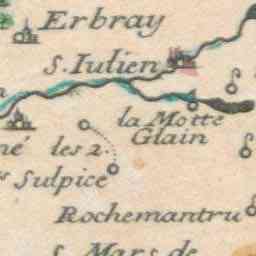 Erbray
S. Iulien
la Motte
Glain
né les 2.
Sulpice
Rochemantru
S. Mars de